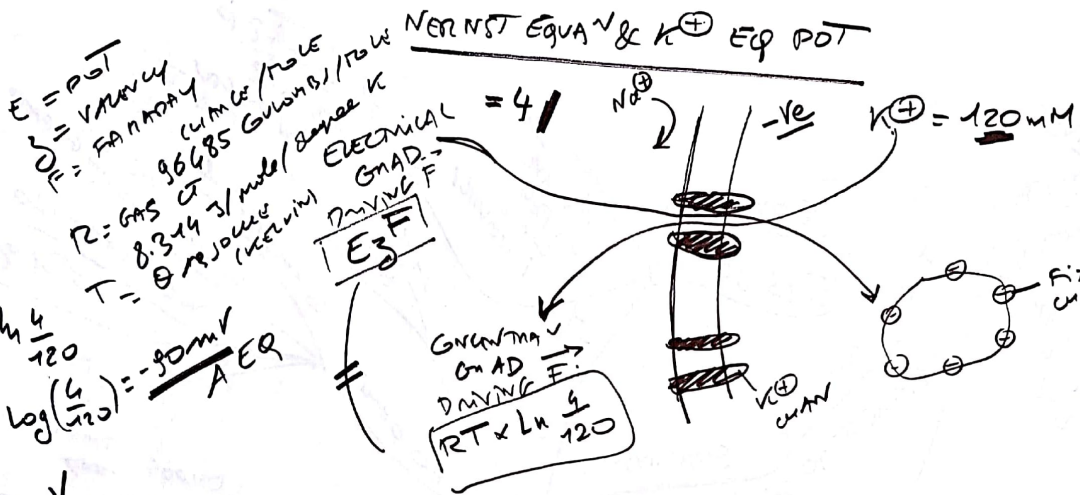 NERNST EQUAN & K⊕ EQ POT
E = POT
z = VALENCY
F = FARADAY
CHARGE/MOLE
96485 COULOMBS/MOLE
R = GAS CT
8.314 J/mole/degree K
T = θ
(KELVIN)
ELECTRICAL
GRAD.
DRIVING F
EzF
= 4
Na⊕
-ve
K⊕ = 120 mM
ln 4/120
log(4/120) = -90mV
A EQ
=
CONCNTRAN
GRAD
DRIVING F.
RT x Ln 4/120
K⊕
CHAN